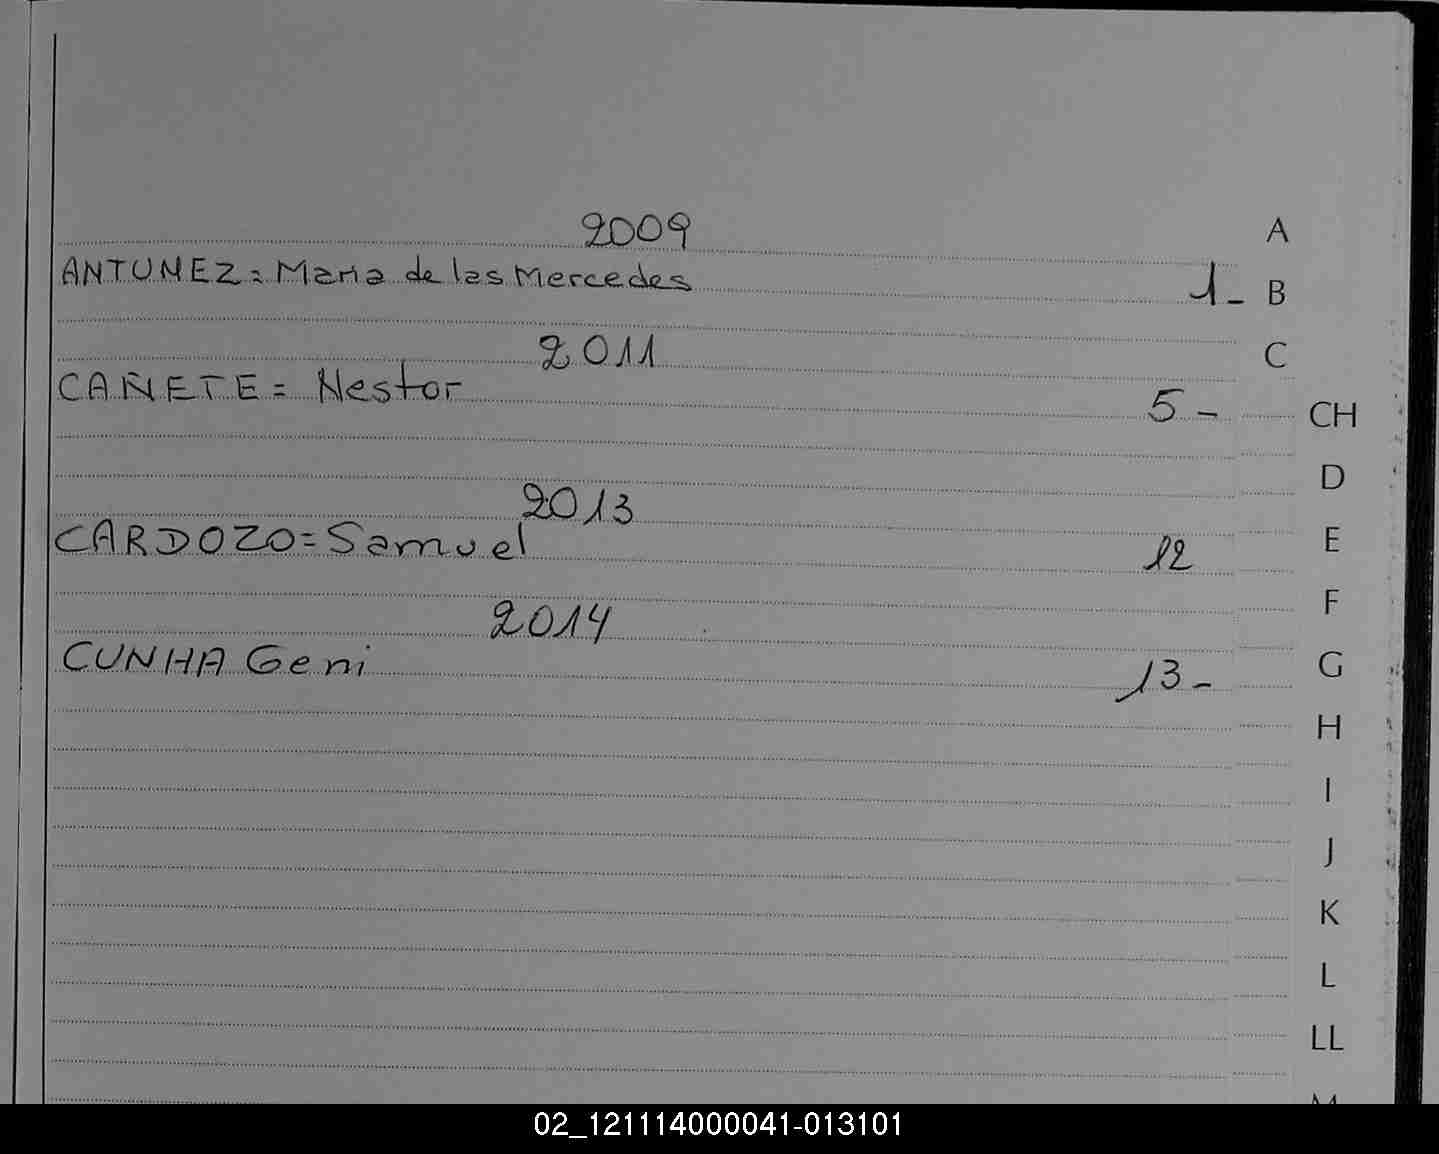 2009
ANTUNEZ = Maria de las Mercedes 1-
2011
CAÑETE = Nestor 5 -
2013
CARDOZO = Samuel 12
2014
CUNHA Geni 13-
A
B
C
CH
D
E
F
G
H
I
J
K
L
LL
M
02_121114000041-013101